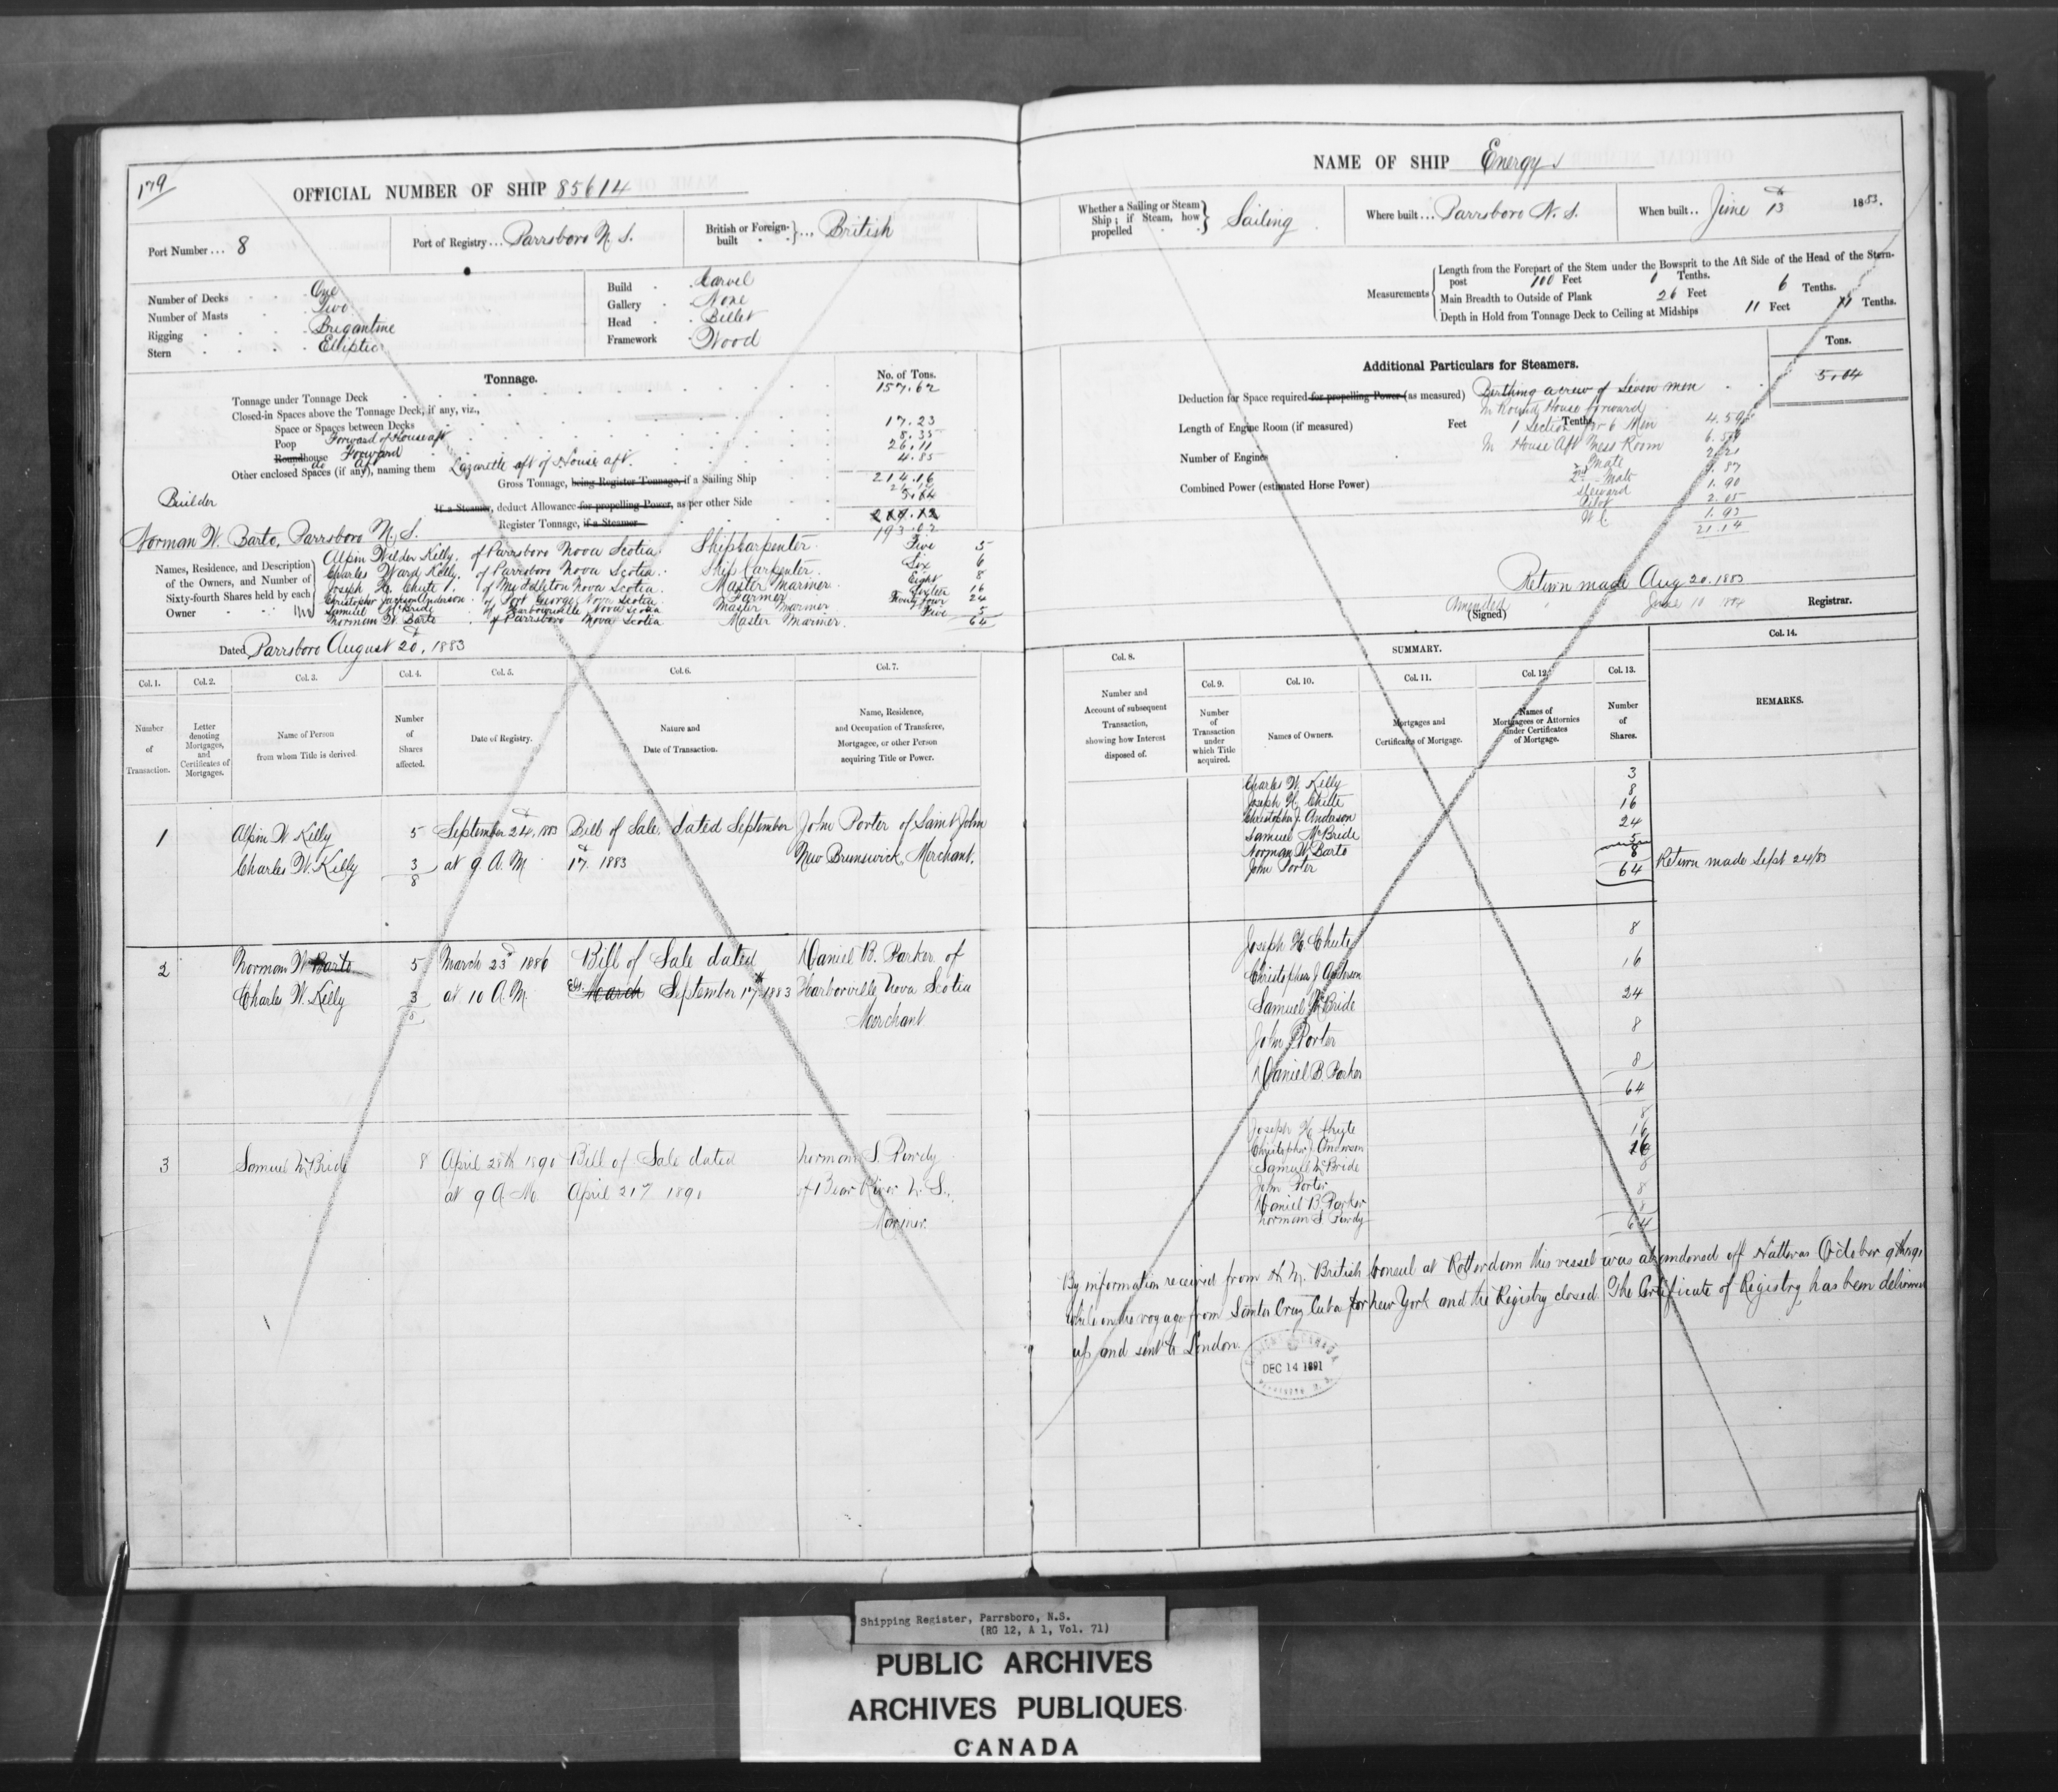 179
OFFICIAL NUMBER OF SHIP 85614
Port Number ... 8
Port of Registry ... Parrsboro N. S.
British or Foreign-built } ... British
Number of Decks One
Number of Masts Two
Rigging Brigantine
Stern Elliptic
Build Carvel
Gallery None
Head Billet
Framework Wood
Tonnage.
No. of Tons.
Tonnage under Tonnage Deck 157.62
Closed-in Spaces above the Tonnage Deck, if any, viz.,
Space or Spaces between Decks
Poop Forward of House aft 17.23
Roundhouse Forward 8.35
do Aft 26.11
Other enclosed Spaces (if any), naming them Lazarette aft of House aft. 4.85
Gross Tonnage, being Register Tonnage, if a Sailing Ship 214.16
If a Steamer, deduct Allowance for propelling Power, as per other Side
Register Tonnage, if a Steamer 193.02
Builder
Norman W. Barto, Parrsboro N. S.
Names, Residence, and Description of the Owners, and Number of Sixty-fourth Shares held by each Owner
Alpin Wilder Kelly, of Parrsboro Nova Scotia. Ship Carpenter. Five 5
Charles Ward Kelly, of Parrsboro Nova Scotia. Ship Carpenter. Six 6
Joseph H. Chute, of Middleton Nova Scotia. Master Mariner. Eight 8
Christopher Jackson Anderson of Port George Nova Scotia Farmer Sixteen 16
Samuel McBride of Harbourville Nova Scotia Master Mariner Twenty four 24
Norman W. Barto of Parrsboro Nova Scotia Master Mariner. Five 5
64
Dated Parrsboro August 20, 1883
Col. 1. Col. 2. Col. 3. Col. 4. Col. 5. Col. 6. Col. 7.
Number of Transaction.
Letter denoting Mortgages, and Certificates of Mortgages.
Name of Person from whom Title is derived.
Number of Shares affected.
Date of Registry.
Nature and Date of Transaction.
Name, Residence, and Occupation of Transferee, Mortgagee, or other Person acquiring Title or Power.
1 Alpin W Kelly 5 September 24, 1883 Bill of Sale dated September John Porter of Saint John
Charles W. Kelly 3 at 9 A.M. 17 1883 New Brunswick, Merchant.
8
2 Norman W Barto 5 March 23d 1886 Bill of Sale dated Daniel B. Parker of
Charles W. Kelly 3 at 10 A.M. March September 17th 1883 Harborville Nova Scotia
8 Merchant
3 Samuel McBride 8 April 28th 1890 Bill of Sale dated Norman S. Purdy
at 9 A.M. April 21st 1890 of Bear River N. S.,
Mariner.
NAME OF SHIP Energy
Whether a Sailing or Steam Ship; if Steam, how propelled } Sailing
Where built ... Parrsboro N. S.
When built .. June 13 1883.
Measurements
Length from the Forepart of the Stem under the Bowsprit to the Aft Side of the Head of the Stern-post 100 Feet Tenths.
Main Breadth to Outside of Plank 26 Feet 6 Tenths.
Depth in Hold from Tonnage Deck to Ceiling at Midships 11 Feet Tenths.
Additional Particulars for Steamers.
Tons.
Deduction for Space required for propelling Power (as measured) Berthing a crew of Seven men 5.04
In Round House forward
Length of Engine Room (if measured) Feet Tenths
1 Section for 6 Men
Number of Engines
In House Aft Mess Room
Combined Power (estimated Horse Power)
Mate
2nd Mate 1.87
Steward 1.90
Pilot 2.05
W.C. 1.93
21.14
Return made Aug 20. 1883
Amended June 10
(Signed) Registrar.
Col. 8.
SUMMARY.
Col. 14.
Col. 9. Col. 10. Col. 11. Col. 12. Col. 13.
Number and Account of subsequent Transaction, showing how Interest disposed of.
Number of Transaction under which Title acquired.
Names of Owners.
Mortgages and Certificates of Mortgage.
Names of Mortgagees or Attornies under Certificates of Mortgage.
Number of Shares.
REMARKS.
Charles W. Kelly 3
Joseph H. Chute 8
Christopher J. Anderson 16
Samuel McBride 24
Norman W. Barto 5
John Porter 8
64
Return made Sept 24/83
Joseph H. Chute 8
Christopher J Anderson 16
Samuel McBride 24
John Porter 8
Daniel B. Parker 8
64
Joseph H. Chute 8
Christopher J. Anderson 16
Samuel McBride 16
John Porter 8
Daniel B. Parker 8
Norman S. Purdy 8
64
By information received from H. M. British Consul at Rotterdam this vessel was abandoned off Hatteras October 9th
while on the voyage from Santa Cruz Cuba for New York and the Registry closed. The Certificate of Registry has been delivered
up and sent to London.
DEC 14 1891
Shipping Register, Parrsboro, N.S.
(RG 12, A 1, Vol. 71)
PUBLIC ARCHIVES
ARCHIVES PUBLIQUES
CANADA